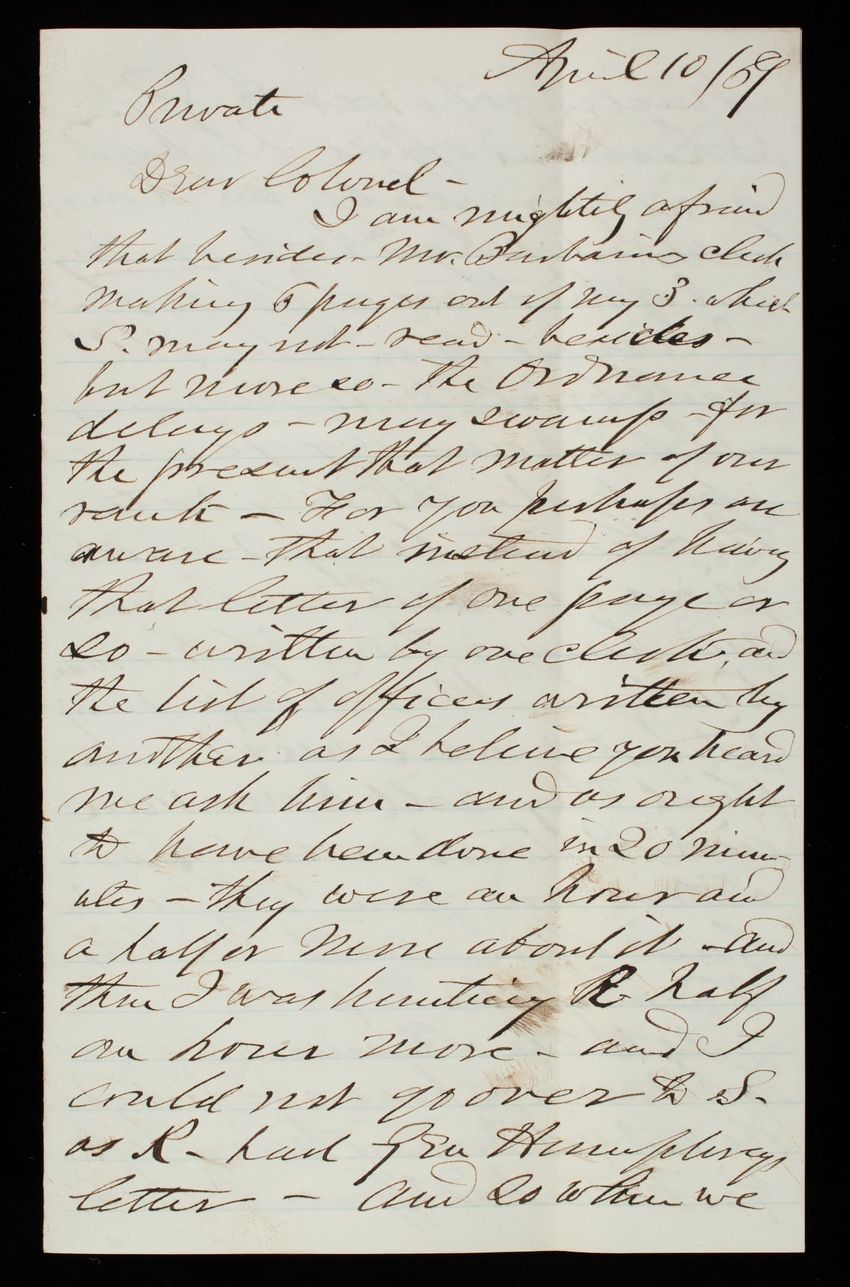 April 10/69
Private
Dear Colonel -
I am mightily afraid
that besides - Mr. Barbarins clerk
making 6 pages out of my 3 - which
S. may not - read - besides -
but more so - the Ordnance
delays - may swamp - for
the present that matter of our
rank - For you perhaps are
aware - that instead of having
that letter of one page or
so - written by one clerk, and
the list of officers written by
another as I believe you heard
me ask him - and as ought
to have been done in 20 min-
utes - they were an hour and
a half or more about it - and
then I was hunting R half
an hour more - and I
could not go over to S.
as R - had Gen Humphreys
letter - and so when we